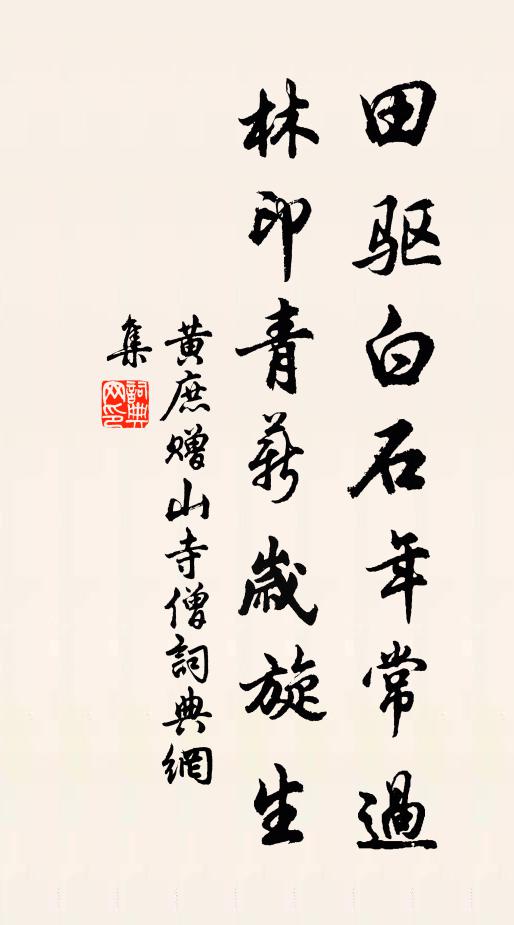 田驱白石年常過
林印青薪歲旋生
黄庶赠山寺僧詞典網
集
詞典
网印